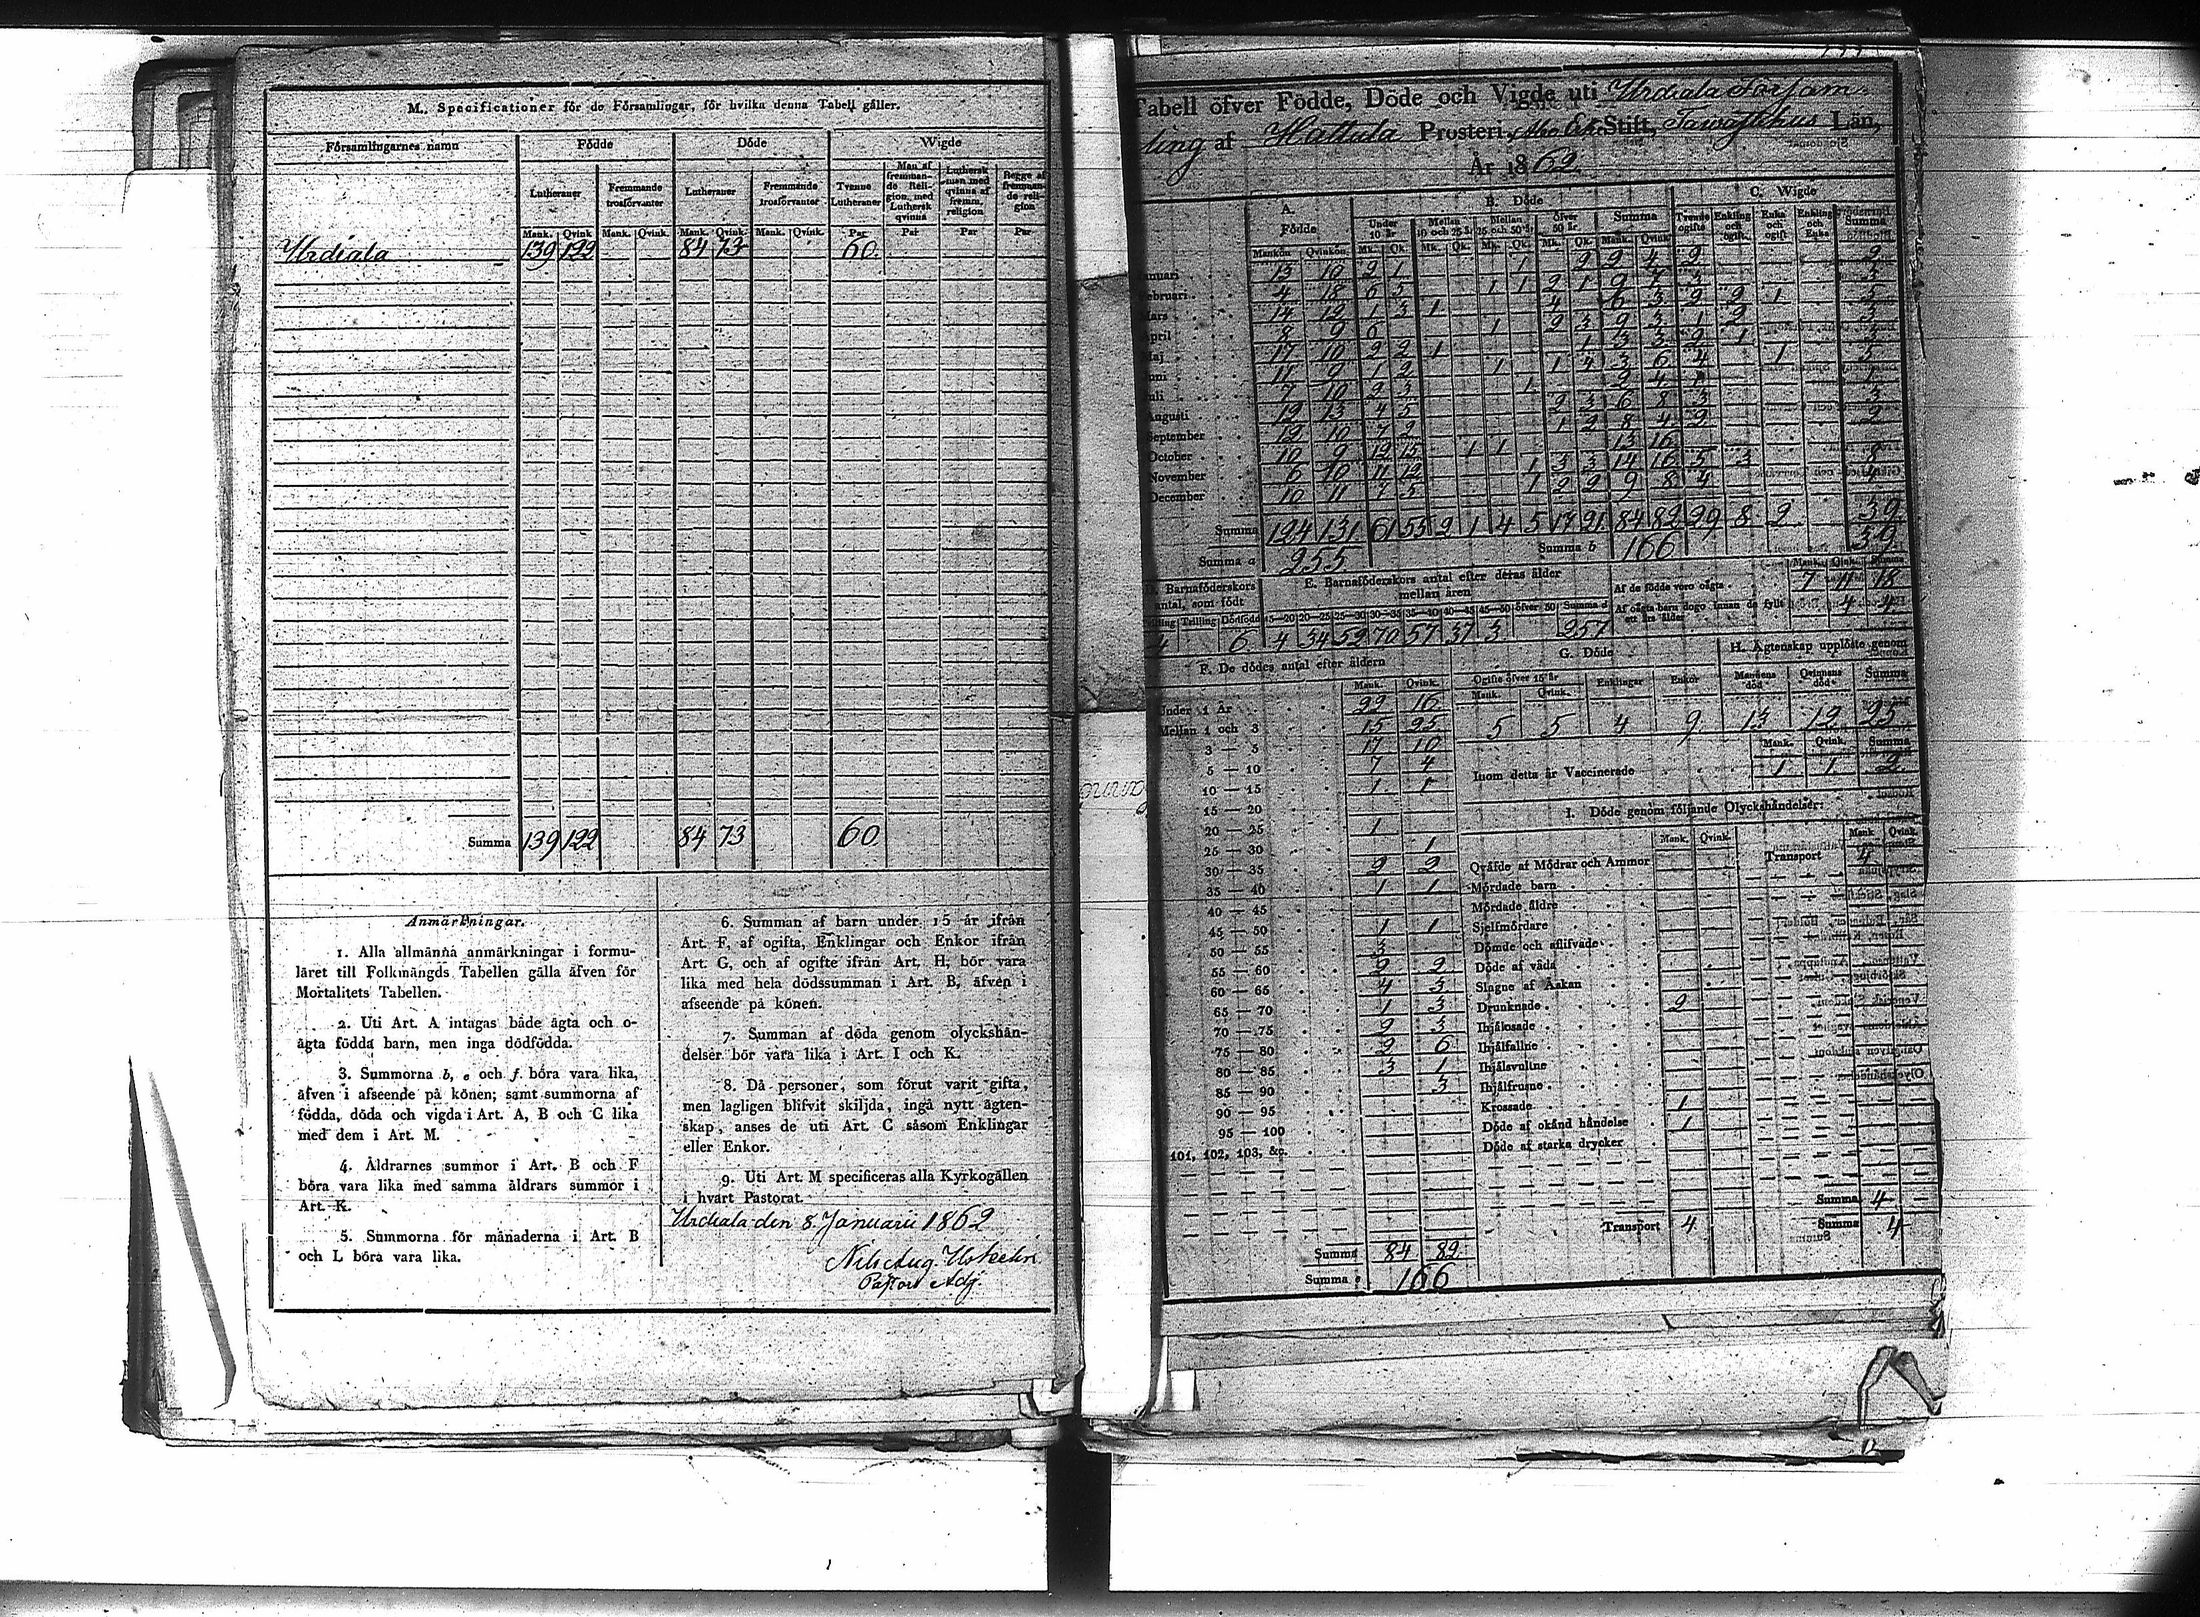 M. Specificationer för de Församlingar, för hvilka denna Tabell gäller.
Församlingarnes namn Födde Döde Wigde
Lutheraner Fremmande trosförvanter Lutheraner Fremmande trosförvanter Tvenne Lutheraner Man af fremmande Religion med Luthersk qvinna Luthersk man med qvinna af fremm. religion Begge af fremmande religion
Mank. Qvink Mank. Qvink. Mank. Qvink. Mank. Qvink. Par Par Par Par
Urdiala 139 122 84 73 60
Summa 139 122 84 73 60
Anmärkningar.
1. Alla allmänna anmärkningar i formu-
läret till Folkmängds Tabellen gälla äfven för
Mortalitets Tabellen.
2. Uti Art. A intagas både ägta och o-
ägta födda barn, men inga dödfödda.
3. Summorna b, e och f. böra vara lika,
äfven i afseende på könen; samt summorna af
födda, döda och vigda i Art. A, B och C lika
med dem i Art. M.
4. Åldrarnes summor i Art. B och F
böra vara lika med samma åldrars summor i
Art. K.
5. Summorna för månaderna i Art. B
och L böra vara lika.
6. Summan af barn under 15 år ifrån
Art. F, af ogifta, Enklingar och Enkor ifrån
Art. G, och af ogifte ifrån Art. H, bör vara
lika med hela dödssumman i Art. B, äfven i
afseende på könen.
7. Summan af döda genom olyckshän-
delser bör vara lika i Art. I och K.
8. Då personer, som förut varit gifta,
men lagligen blifvit skiljda, ingå nytt ägten-
skap, anses de uti Art. C såsom Enklingar
eller Enkor.
9. Uti Art. M specificeras alla Kyrkogällen
i hvart Pastorat.
Urdiala den 8. Januarii 1862
Nils Aug.
Pastors Adj.
Tabell öfver Födde, Döde och Vigde uti Urdiala Församling
af Hattula Prosteri, Åbo Erke Stift, Tawastehus Län,
År 1862.
A. Födde B. Döde C. Wigde
Under 10 år Mellan 10 och 25 år Mellan 25 och 50 år Öfver 50 år Summa Tvenne ogifte Enkling och ogift Enka och ogift Enkling och Enka Summa
Mankön Qvinkön Mk. Qk. Mk. Qk. Mk. Qk. Mk. Qk. Mank. Qvink.
Januari 13 10 2 1 1 2 2 4 2 2
Februari 4 18 6 5 1 1 2 1 9 7 3 3
Mars 14 12 1 3 1 4 6 3 2 2 1 5
April 8 9 6 1 2 3 9 3 1 2 3
Maj 17 10 2 2 1 1 3 3 2 1 3
Juni 11 9 1 2 1 1 4 3 6 4 1 5
Juli 7 10 2 3 1 2 4 1 1
Augusti 12 13 4 5 2 3 6 8 3 3
September 12 10 7 2 1 2 8 4 2 2
October 10 9 12 15 1 1 13 16
November 6 10 11 12 1 3 3 14 16 5 3 8
December 10 11 7 5 1 2 2 9 8 4 4
Summa 124 131 61 55 2 1 4 5 17 21 84 82 29 8 2 39
Summa a 255 Summa b 166 39
D. Barnaföderskors antal, som födt
Tvilling Trilling Dödfödde
4 6
E. Barnaföderskors antal efter deras ålder mellan åren
15—20 20—25 25—30 30—35 35—40 40—45 45—50 öfver 50 Summa d
4 34 52 70 57 37 3 257
Mank. Qvink. Summa
Af de födde voro oägta 7 11 18
Af oägta barn dogo innan de fyllt ett års ålder 4 4
F. De dödes antal efter åldern
Mank. Qvink.
Under 1 År 22 16
Mellan 1 och 3 15 25
3 — 5 17 10
5 — 10 7 4
10 — 15 1 1
15 — 20
20 — 25 1
25 — 30 1
30 — 35 2 2
35 — 40 1 1
40 — 45
45 — 50 1 1
50 — 55 3
55 — 60 2 2
60 — 65 4 3
65 — 70 1 3
70 — 75 2 3
75 — 80 2 6
80 — 85 3 1
85 — 90 3
90 — 95
95 — 100
101, 102, 103, &c.
Summa 84 82
Summa e 166
G. Döde
Ogifte öfver 15 år Enklingar Enkor
Mank. Qvink.
5 5 4 9
H. Ägtenskap upplöste genom
Mannens död Qvinnans död Summa
13 12 25
Mank. Qvink. Summa
Inom detta år Vaccinerade 1 1 2
I. Döde genom följande Olyckshändelser:
Mank. Qvink. Mank. Qvink.
Qväfde af Mödrar och Ammor Transport 4
Mördade barn
Mördade äldre
Sjelfmördare
Dömde och aflifvade
Döde af våda
Slagne af Åskan
Drunknade 2
Ihjälosade
Ihjälfallne
Ihjälsvultne
Ihjälfrusne
Krossade 1
Döde af okänd händelse 1
Döde af starka drycker
Summa 4
Transport 4 Summa 4